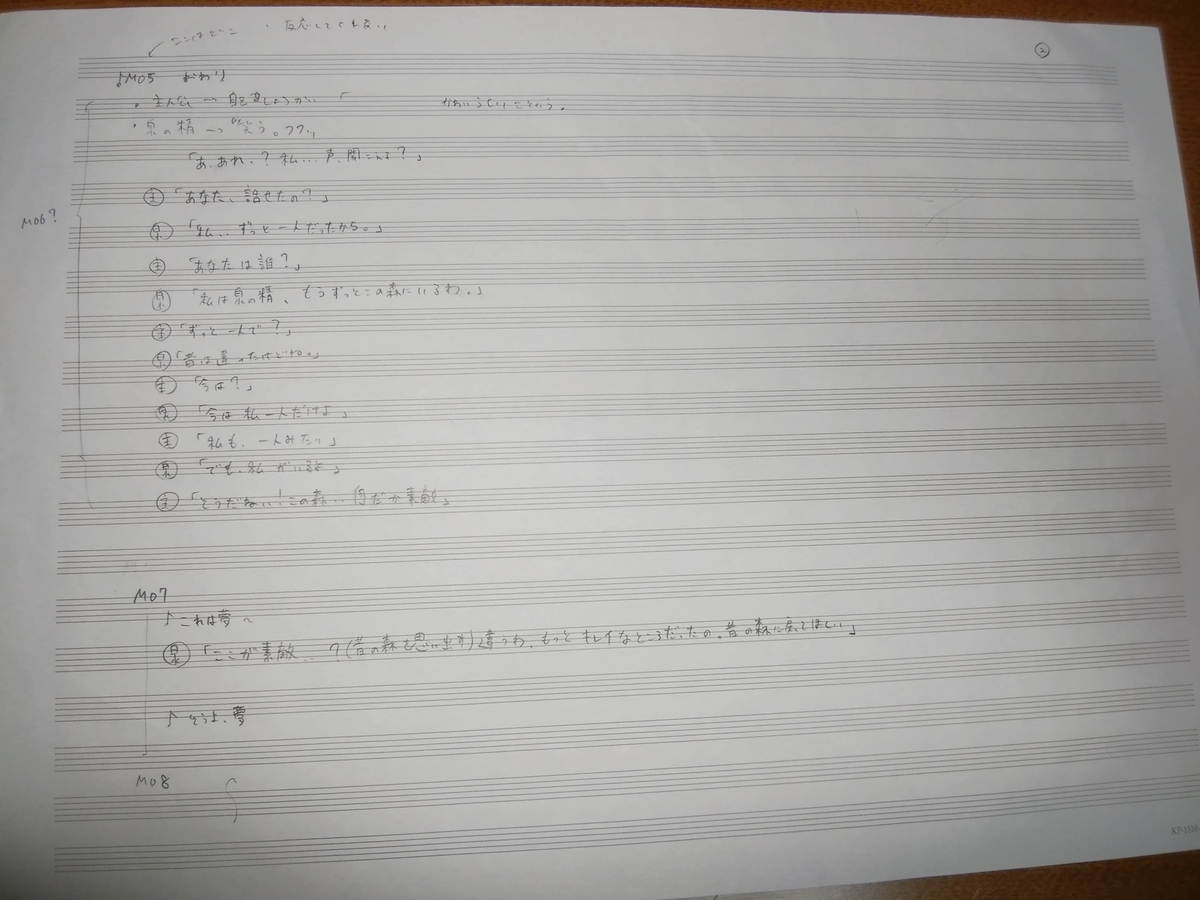 ここはどこ ・反応してくれない
②
♪M05 おわり
・主人公→自己紹介しようかい「 かわいらしいこという。
・泉の精→笑う。フフッ
「あ、あれ、?私…声、聞こえる?」
M06?
主「あなた、話せたの?」
泉「私…ずっと一人だったから。」
主「あなたは誰?」
泉「私は泉の精、もうずっとこの森にいるわ。」
主「ずっと一人で?」
泉「昔は違ったけどね。」
主「今は?」
泉「今は私一人だけよ」
主「私も、一人みたい」
泉「でも、私がいるよ」
主「そうだね!この森…何だか素敵」
M07
♪これは夢〜
泉「ここが素敵…?(昔の森を思い出す)違うわ、もっとキレイなところだったの。昔の森に戻ってほしい」
♪そうよ、夢
M08